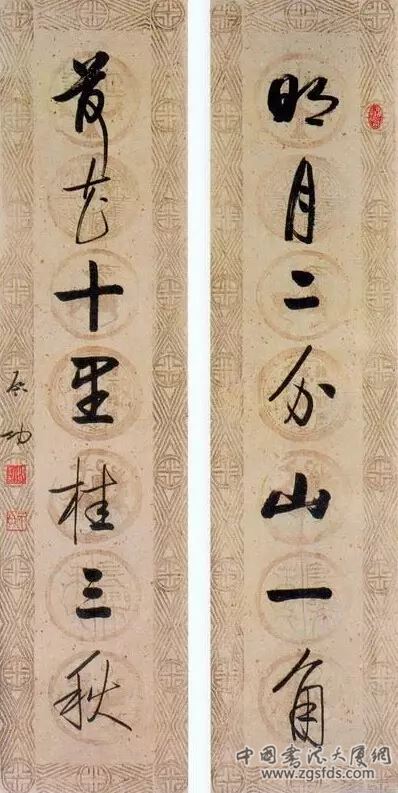 明月二分山一角
荷花十里桂三秋
启功
中國書法大厦網
www.zgsfds.com